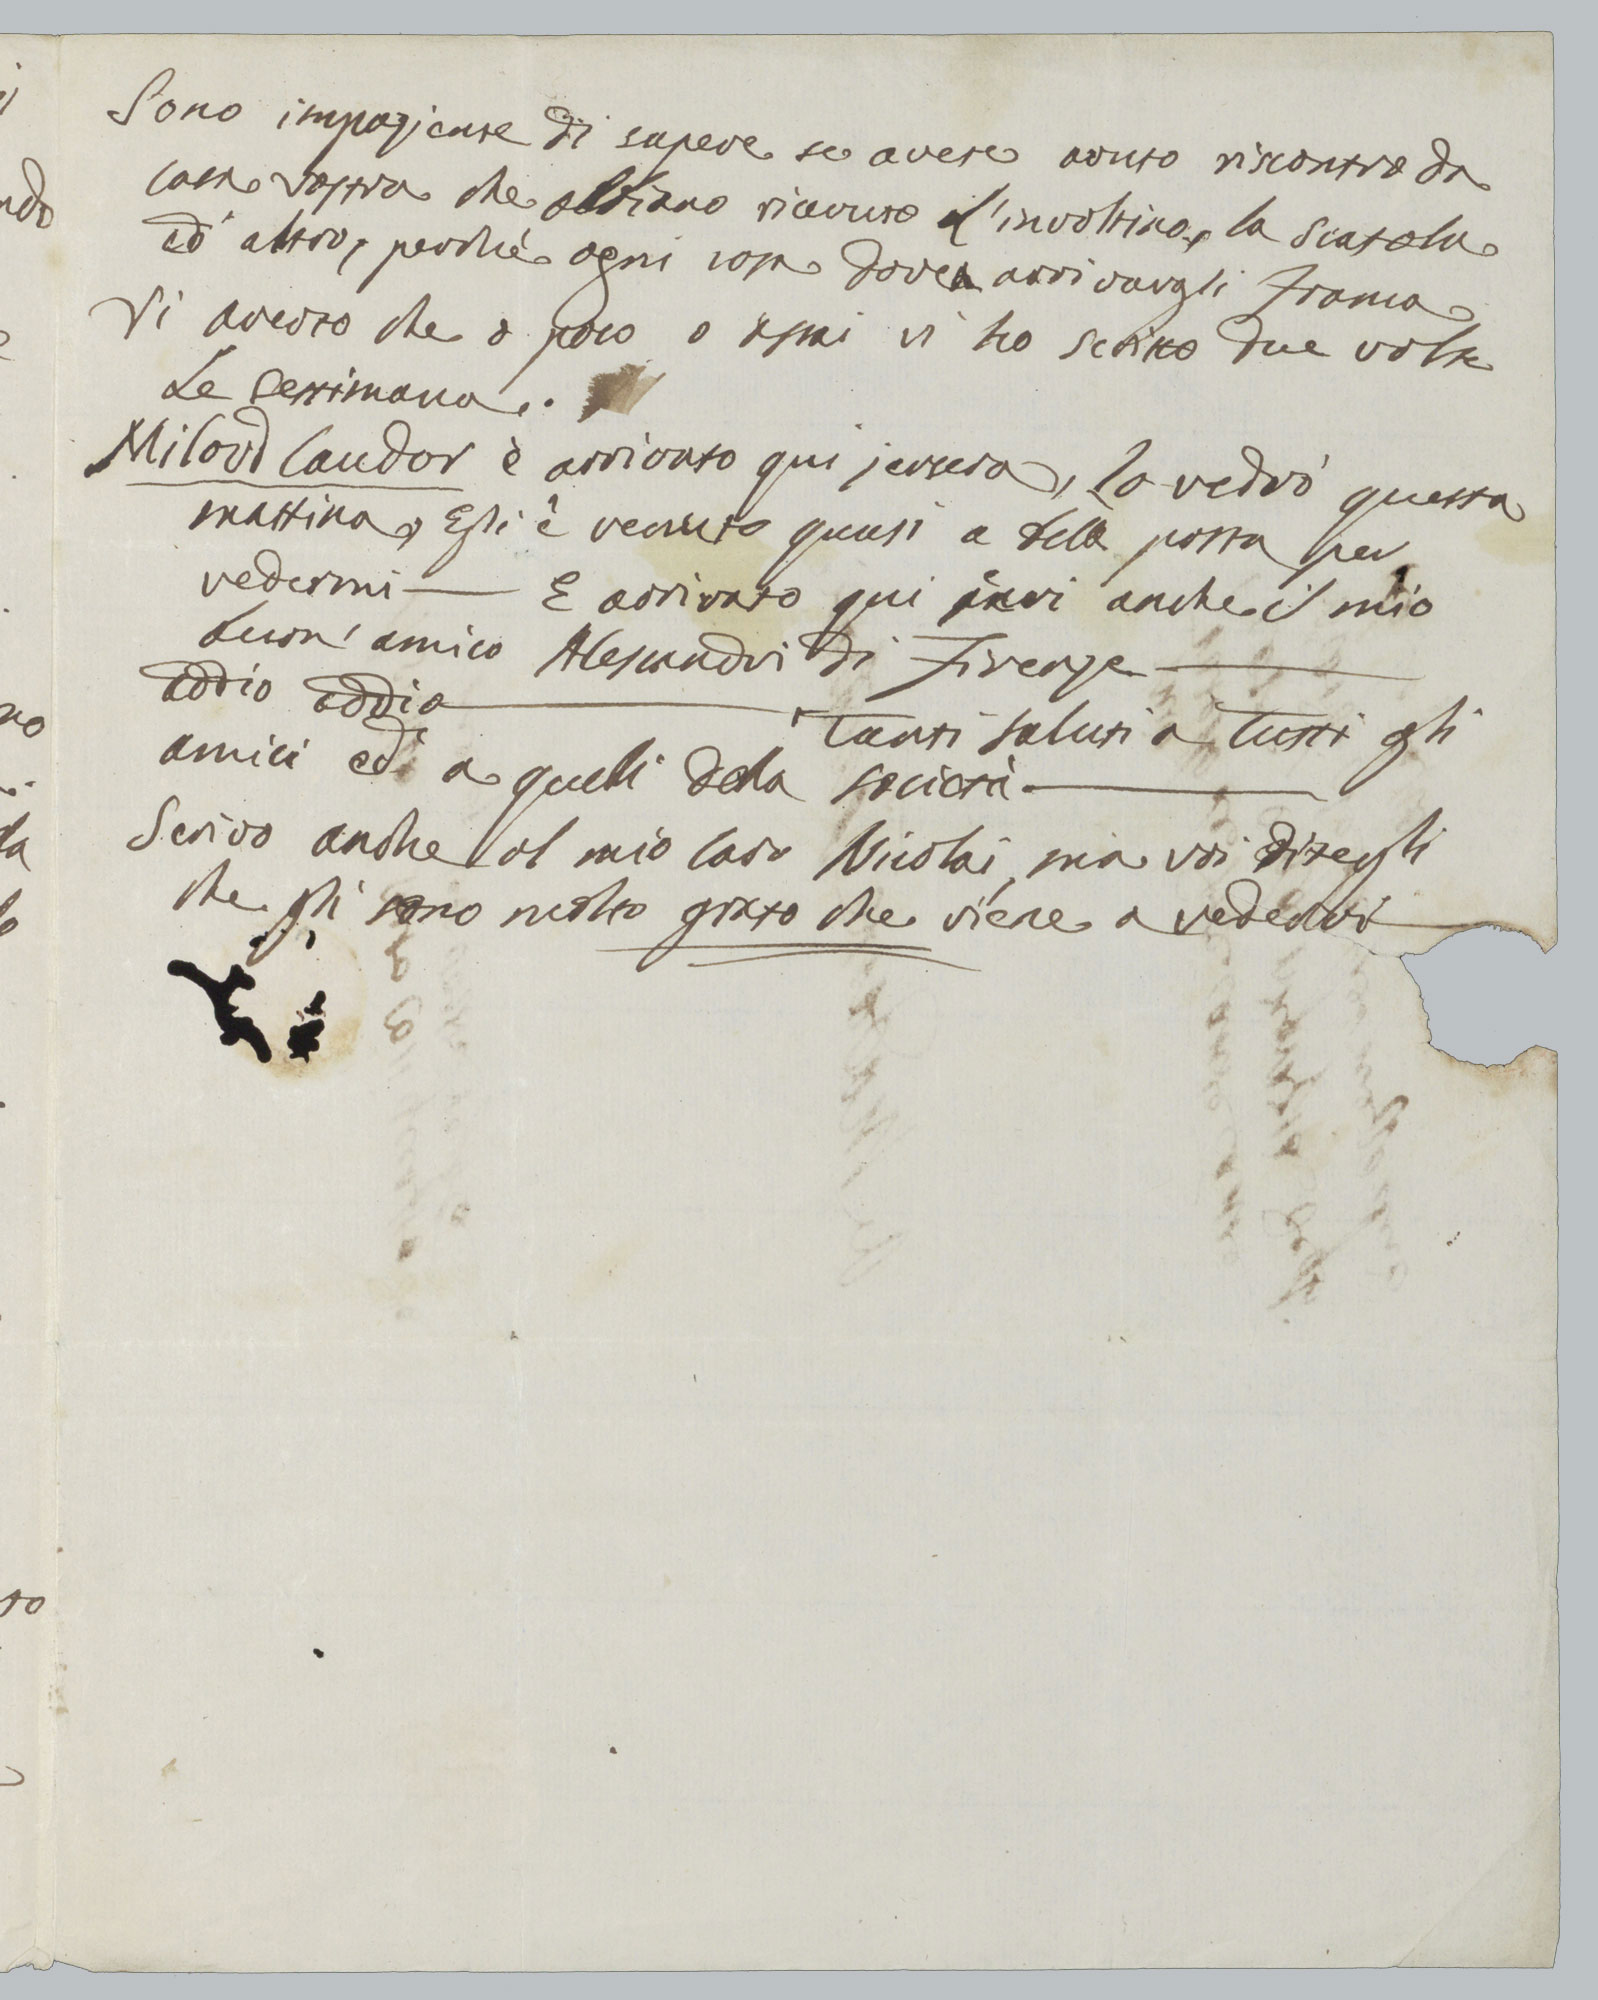 Sono impaziente di sapere se avete avuto riscontro da
casa vostra che abbiano ricevuto l'involtino, la scatola
ed' altro, perchè ogni cosa dovea arrivargli Franca
Vi averto che o poco o assai vi ho scritto due volte
La Settimana.
Milord Caudor è arrivato qui jersera, lo vedrò questa
mattina, Egli è venuto quasi a bella posta per
vedermi — E arrivato qui jeri anche il mio
buon' amico Alessandri di Firenze —
addio addio — Tanti saluti a Tutti gli
amici ed a quelli della società —
Scrivo anche al mio caro Nicolai, ma voi ditegli
che gli sono molto grato che viene a vedervi